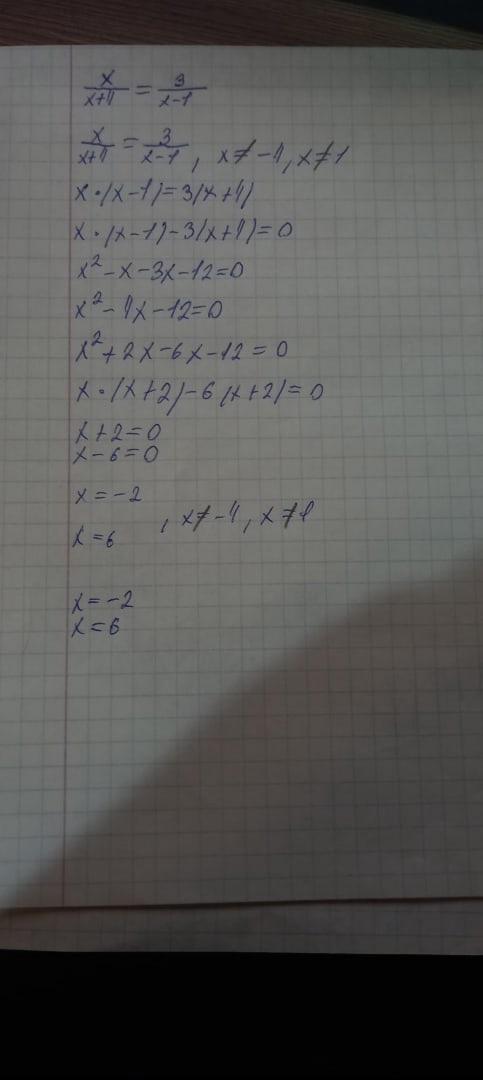 x/(x+4) = 3/(x-1)
x/(x+4) = 3/(x-1), x≠-4, x≠1
x·(x-1)=3(x+4)
x·(x-1)-3(x+4)=0
x²-x-3x-12=0
x²-4x-12=0
x²+2x-6x-12=0
x·(x+2)-6(x+2)=0
x+2=0
x-6=0
x=-2
x=6, x≠-4, x≠1
x=-2
x=6